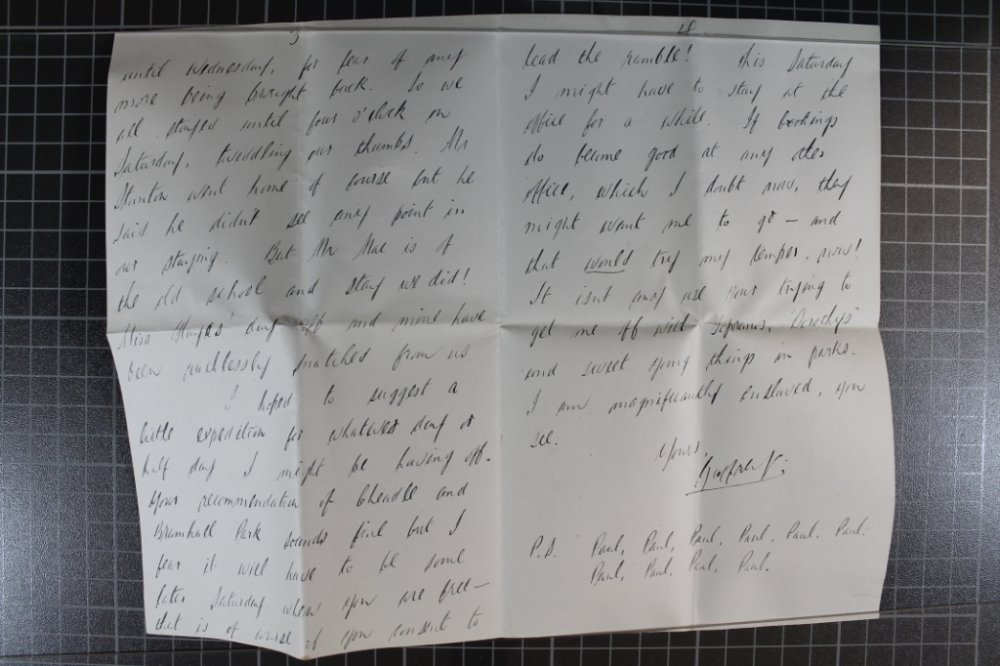 3
until Wednesday, for fear of any
more being brought back. So we
all stayed until four o'clock on
Saturday, twiddling our thumbs. Mr
Stanton went home of course but he
said he didn't see any point in
our staying. But Mr Mac is of
the old school and stay we did!
Miss Hayes' day off and mine have
been ruthlessly snatched from us
I hoped to suggest a
little expedition for whatever day or
half day I might be having off.
Your recommendation of Cheadle and
Bramhall Park sounds fine but I
fear it will have to be some
later Saturday when you are free—
that is of course if you consent to
4
lead the ramble! This Saturday
I might have to stay at the
office for a while. If bookings
do become good at any other
office, which I doubt now, they
might want me to go — and
that would try my temper, now!
It isnt any use your trying to
get me off with Sopranos, "Dorothys"
and sweet young things in parks.
I am magnificently enslaved, you
see.
Yours,
Geoffrey.
P.S. Paul, Paul, Paul, Paul, Paul, Paul.
Paul, Paul, Paul, Paul.